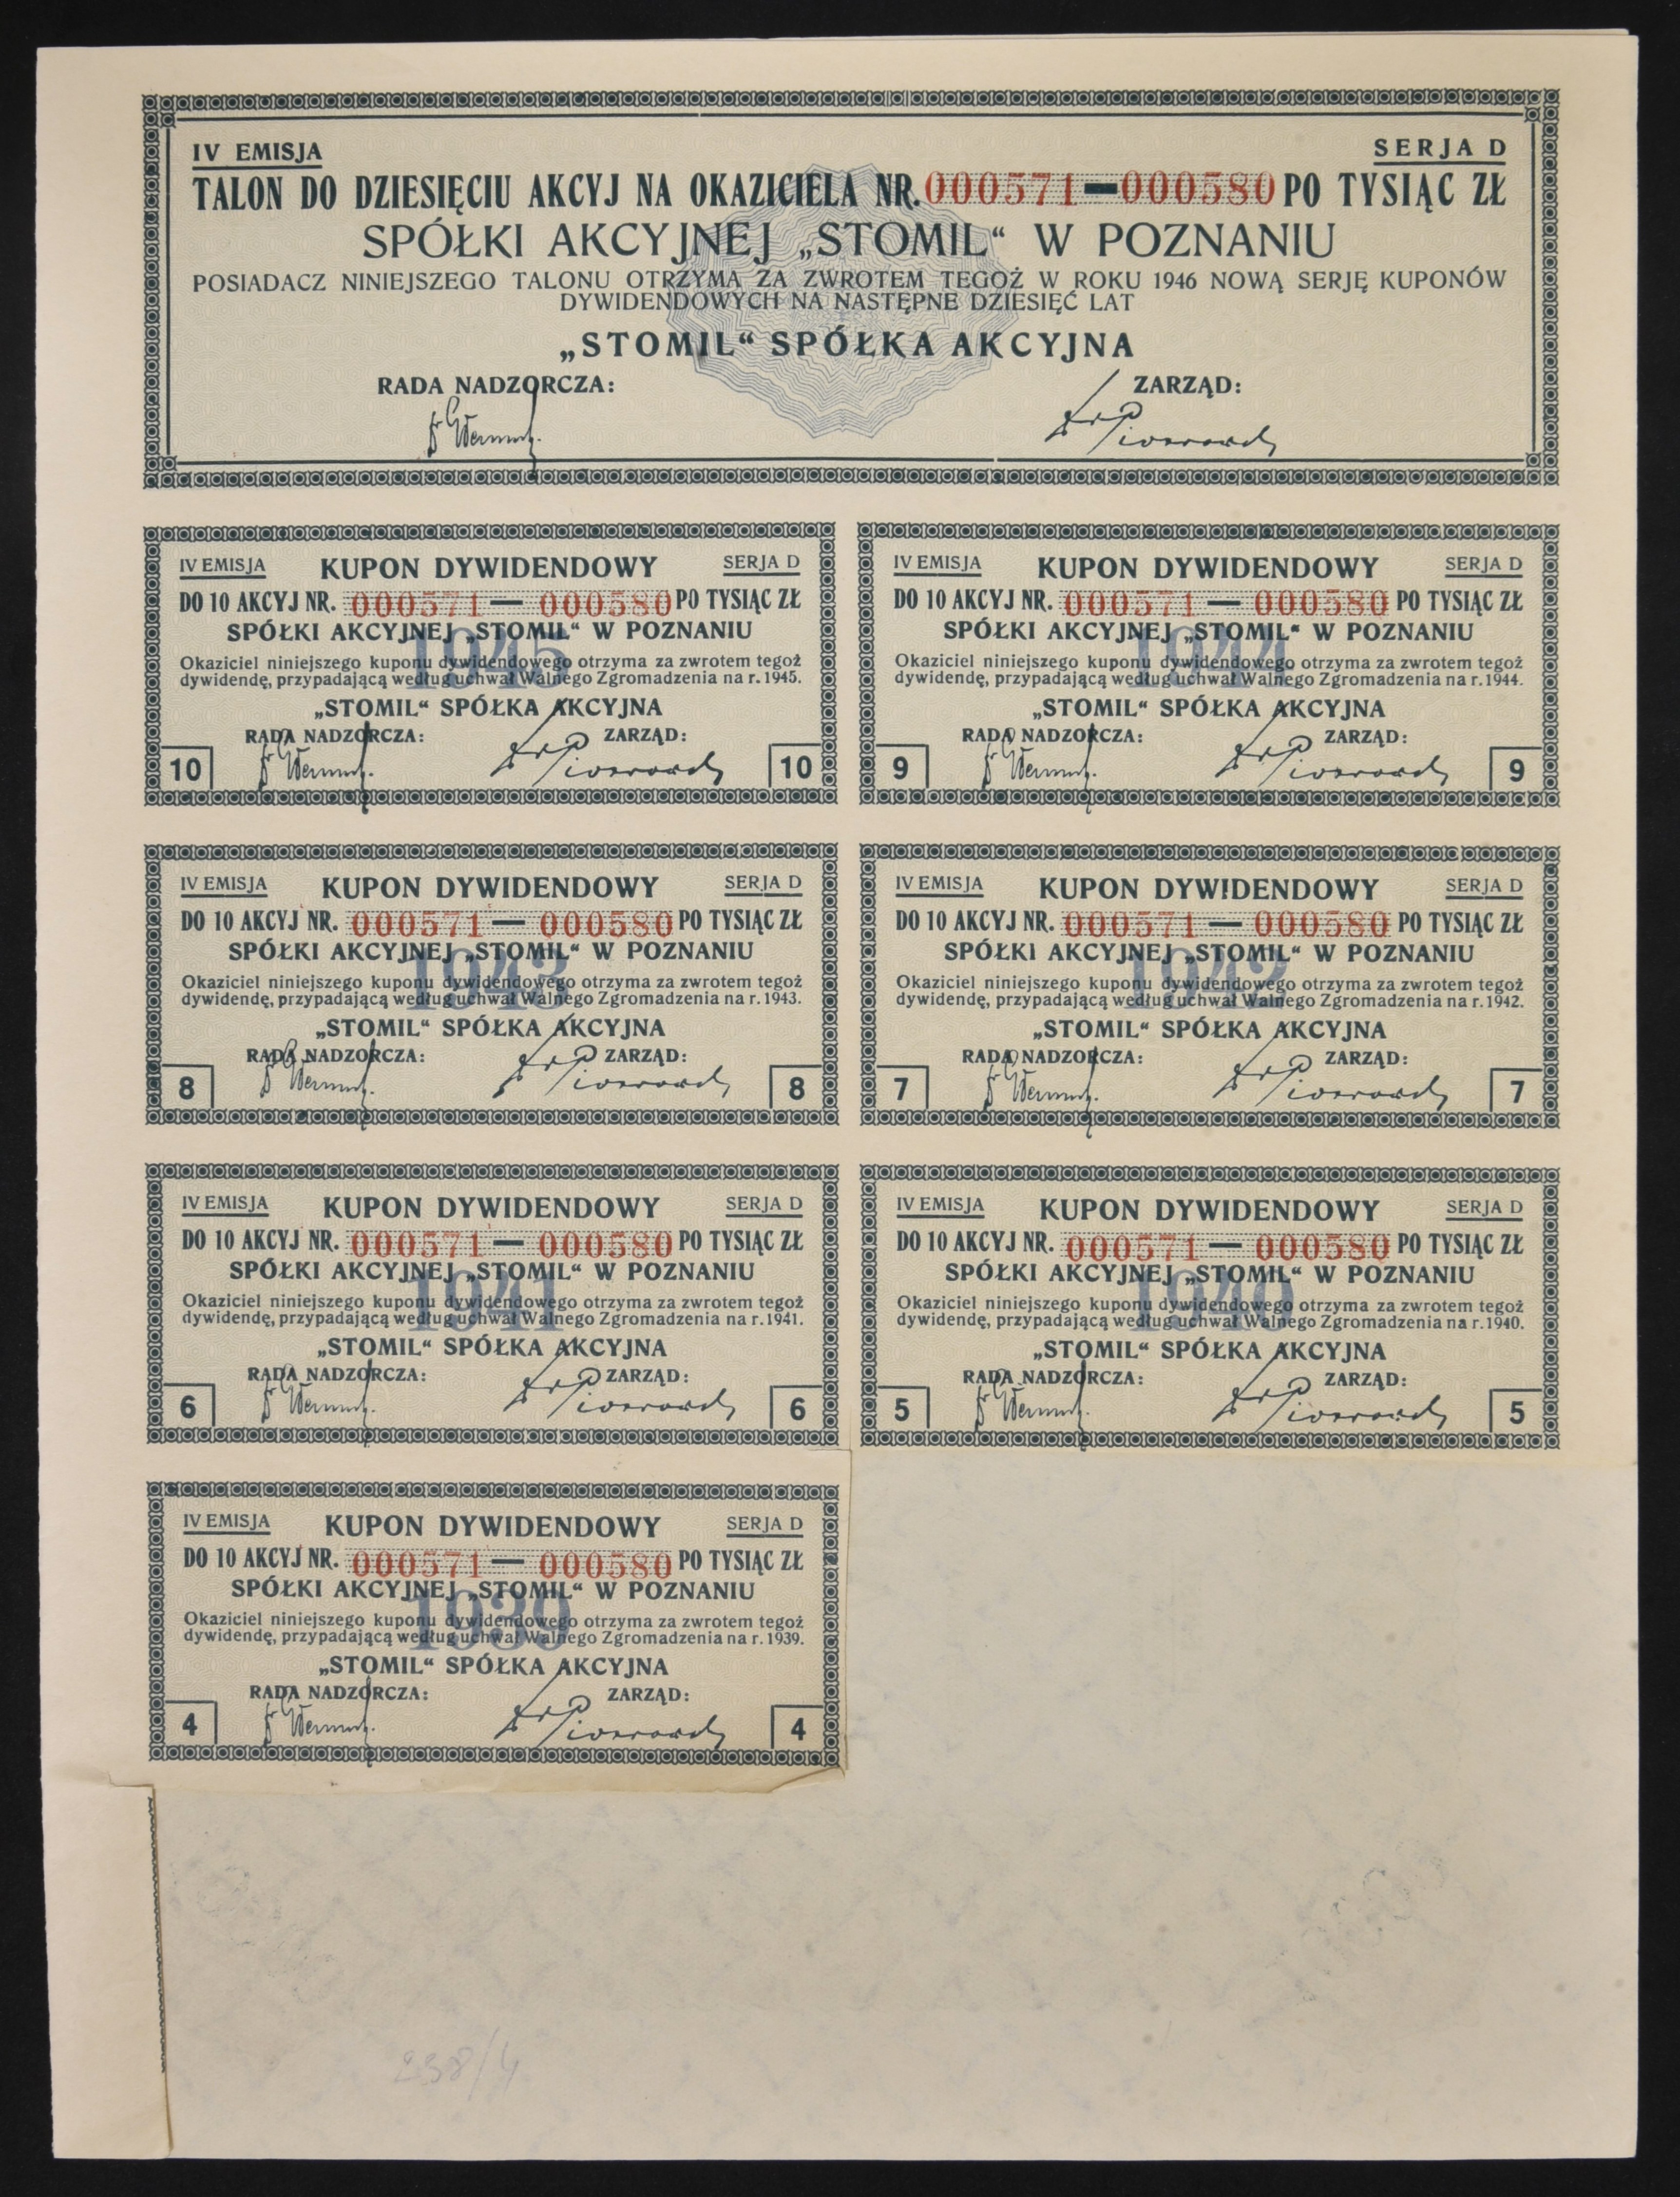 IV EMISJA SERJA D
TALON DO DZIESIĘCIU AKCYJ NA OKAZICIELA NR. 000571—000580 PO TYSIĄC ZŁ
SPÓŁKI AKCYJNEJ „STOMIL“ W POZNANIU
POSIADACZ NINIEJSZEGO TALONU OTRZYMA ZA ZWROTEM TEGOŻ W ROKU 1946 NOWĄ SERJĘ KUPONÓW
DYWIDENDOWYCH NA NASTĘPNE DZIESIĘĆ LAT
„STOMIL“ SPÓŁKA AKCYJNA
RADA NADZORCZA: ZARZĄD:
IV EMISJA KUPON DYWIDENDOWY SERJA D
DO 10 AKCYJ NR. 000571 — 000580 PO TYSIĄC ZŁ
SPÓŁKI AKCYJNEJ „STOMIL“ W POZNANIU
1945
Okaziciel niniejszego kuponu dywidendowego otrzyma za zwrotem tegoż
dywidendę, przypadającą według uchwał Walnego Zgromadzenia na r. 1945.
„STOMIL“ SPÓŁKA AKCYJNA
RADA NADZORCZA: ZARZĄD:
10 10
IV EMISJA KUPON DYWIDENDOWY SERJA D
DO 10 AKCYJ NR. 000571 — 000580 PO TYSIĄC ZŁ
SPÓŁKI AKCYJNEJ „STOMIL“ W POZNANIU
1944
Okaziciel niniejszego kuponu dywidendowego otrzyma za zwrotem tegoż
dywidendę, przypadającą według uchwał Walnego Zgromadzenia na r. 1944.
„STOMIL“ SPÓŁKA AKCYJNA
RADA NADZORCZA: ZARZĄD:
9 9
IV EMISJA KUPON DYWIDENDOWY SERJA D
DO 10 AKCYJ NR. 000571 — 000580 PO TYSIĄC ZŁ
SPÓŁKI AKCYJNEJ „STOMIL“ W POZNANIU
1943
Okaziciel niniejszego kuponu dywidendowego otrzyma za zwrotem tegoż
dywidendę, przypadającą według uchwał Walnego Zgromadzenia na r. 1943.
„STOMIL“ SPÓŁKA AKCYJNA
RADA NADZORCZA: ZARZĄD:
8 8
IV EMISJA KUPON DYWIDENDOWY SERJA D
DO 10 AKCYJ NR. 000571 — 000580 PO TYSIĄC ZŁ
SPÓŁKI AKCYJNEJ „STOMIL“ W POZNANIU
1942
Okaziciel niniejszego kuponu dywidendowego otrzyma za zwrotem tegoż
dywidendę, przypadającą według uchwał Walnego Zgromadzenia na r. 1942.
„STOMIL“ SPÓŁKA AKCYJNA
RADA NADZORCZA: ZARZĄD:
7 7
IV EMISJA KUPON DYWIDENDOWY SERJA D
DO 10 AKCYJ NR. 000571 — 000580 PO TYSIĄC ZŁ
SPÓŁKI AKCYJNEJ „STOMIL“ W POZNANIU
1941
Okaziciel niniejszego kuponu dywidendowego otrzyma za zwrotem tegoż
dywidendę, przypadającą według uchwał Walnego Zgromadzenia na r. 1941.
„STOMIL“ SPÓŁKA AKCYJNA
RADA NADZORCZA: ZARZĄD:
6 6
IV EMISJA KUPON DYWIDENDOWY SERJA D
DO 10 AKCYJ NR. 000571 — 000580 PO TYSIĄC ZŁ
SPÓŁKI AKCYJNEJ „STOMIL“ W POZNANIU
1940
Okaziciel niniejszego kuponu dywidendowego otrzyma za zwrotem tegoż
dywidendę, przypadającą według uchwał Walnego Zgromadzenia na r. 1940.
„STOMIL“ SPÓŁKA AKCYJNA
RADA NADZORCZA: ZARZĄD:
5 5
IV EMISJA KUPON DYWIDENDOWY SERJA D
DO 10 AKCYJ NR. 000571 — 000580 PO TYSIĄC ZŁ
SPÓŁKI AKCYJNEJ „STOMIL“ W POZNANIU
1939
Okaziciel niniejszego kuponu dywidendowego otrzyma za zwrotem tegoż
dywidendę, przypadającą według uchwał Walnego Zgromadzenia na r. 1939.
„STOMIL“ SPÓŁKA AKCYJNA
RADA NADZORCZA: ZARZĄD:
4 4
238/4